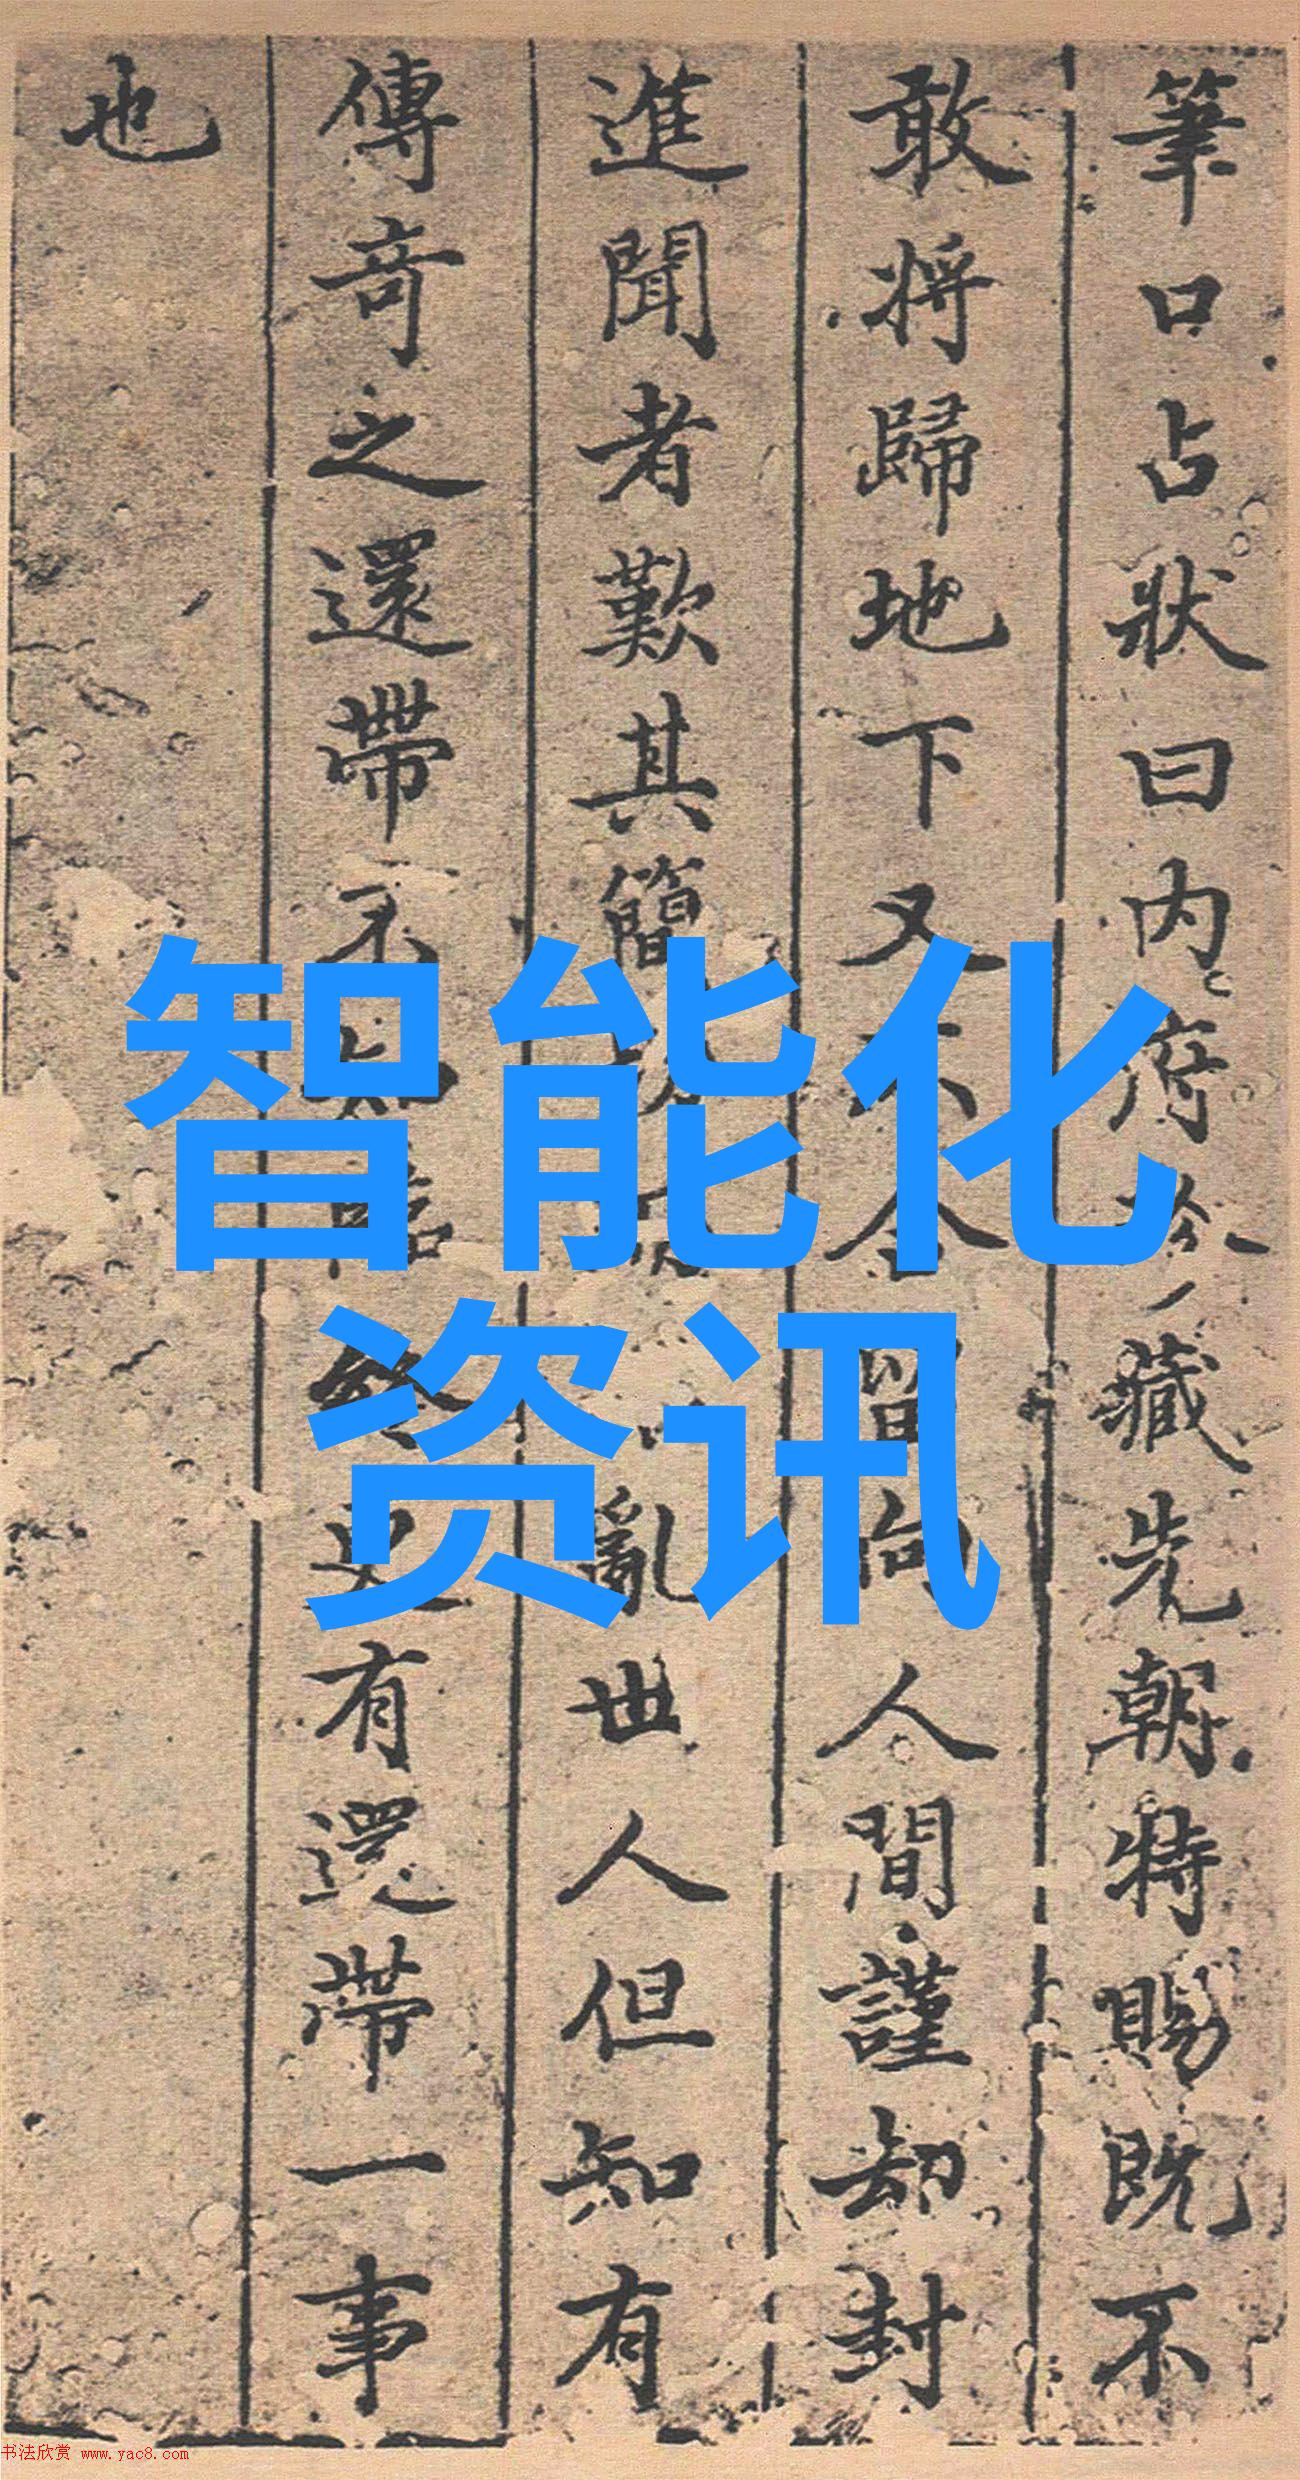 筆口占狀曰内府藏先朝特賜既不
敢將歸地下又不合留向人間謹却封
進聞者歎其簡亂世人但知有
傳奇之還帶不知終更有還帶一事
也
智能化
资讯
书法欣赏 www.yac8.com